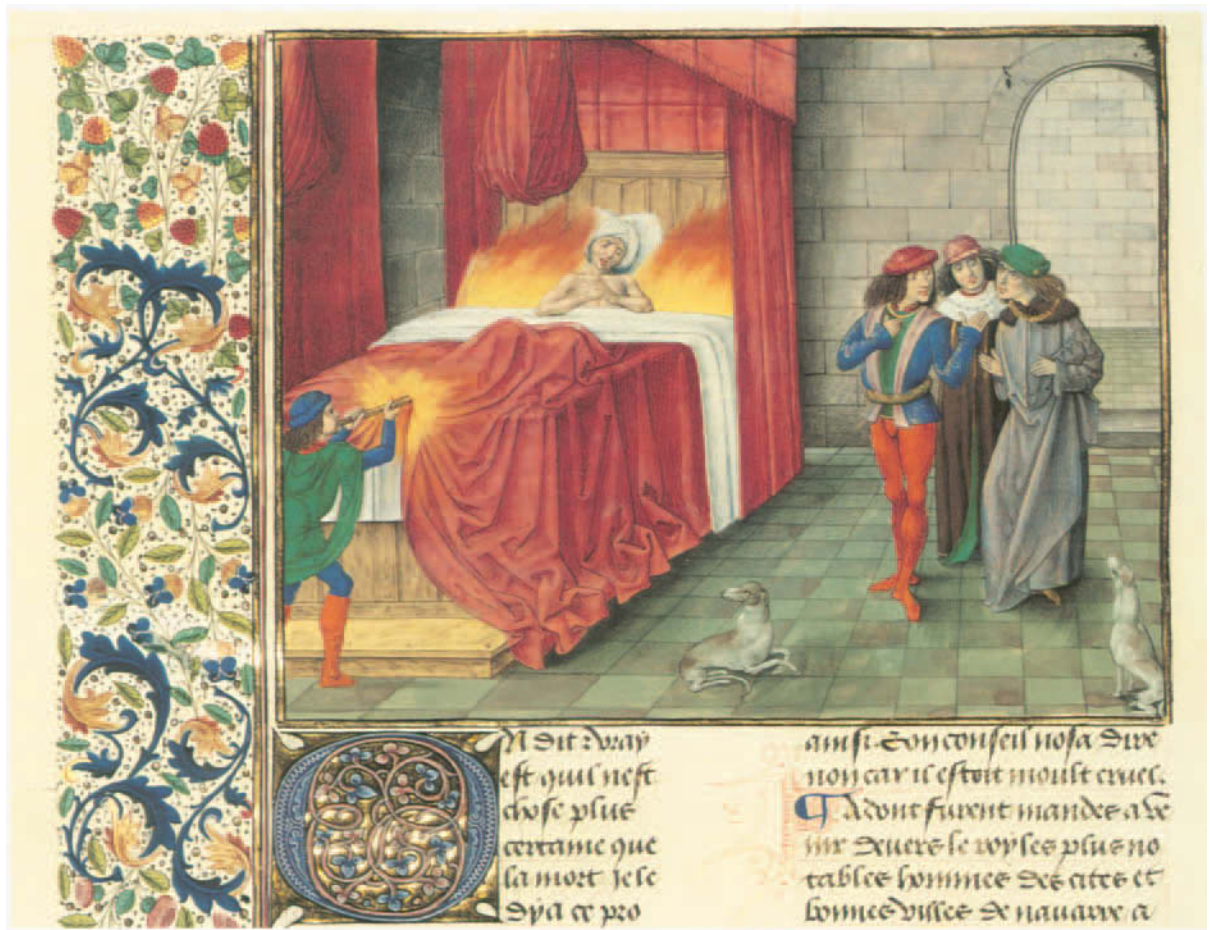 On dit & vray
est quil nest
chose plus
certaine que
la mort je le
dy a ce pro
ainsi. Son conseil nosa dire
non car il estoit moult cruel.
¶ Adont furent mandes a ve
nir devers le roy les plus no
tables hommes des cites et
bonnes villes de navarre a